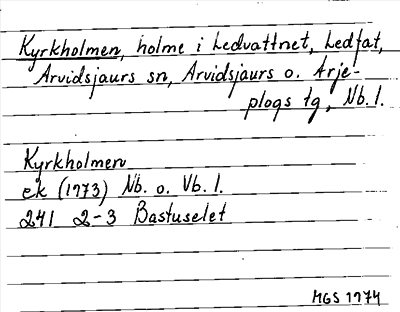 Kyrkholmen, holme i Ledvattnet, Ledfat,
Arvidsjaurs sn, Arvidsjaurs o. Arje-
plogs tg, Nb. l.
Kyrkholmen
ek (1973) Nb. o. Vb. l.
241 2-3 Bastuselet
MGS 1974